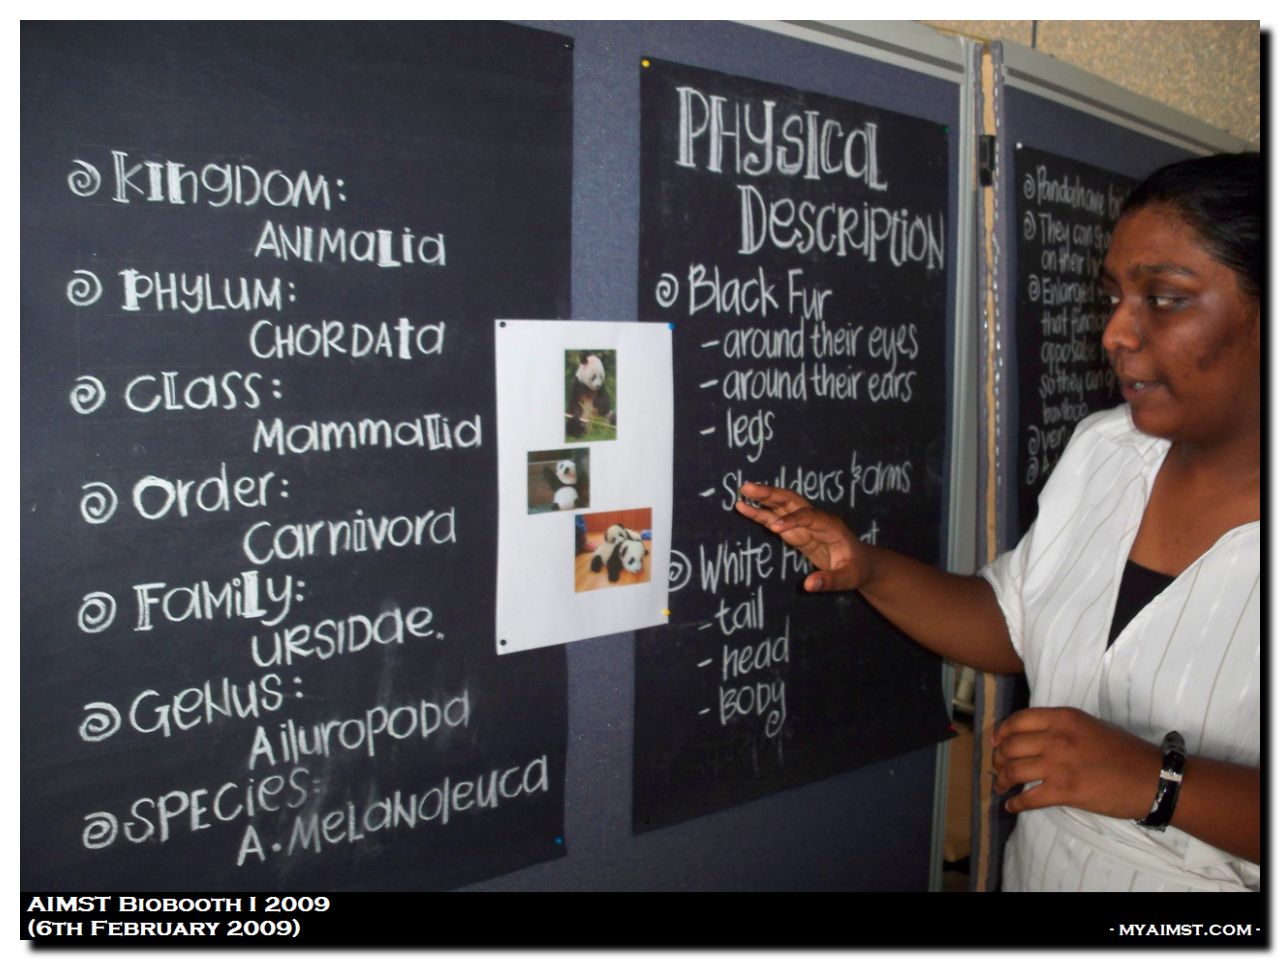 Kingdom:
Animalia
Phylum:
Chordata
Class:
Mammalia
Order:
Carnivora
Family:
Ursidae.
Genus:
Ailuropoda
Species:
A. Melanoleuca
Physical
Description
Black Fur
- around their eyes
- around their ears
- legs
- shoulders & arms
White Fur
- tail
- head
- Body
Panda have
They can
on their
Enlarged
that
so they can
bamboo
AIMST Biobooth I 2009
(6th February 2009)
- myaimst.com -